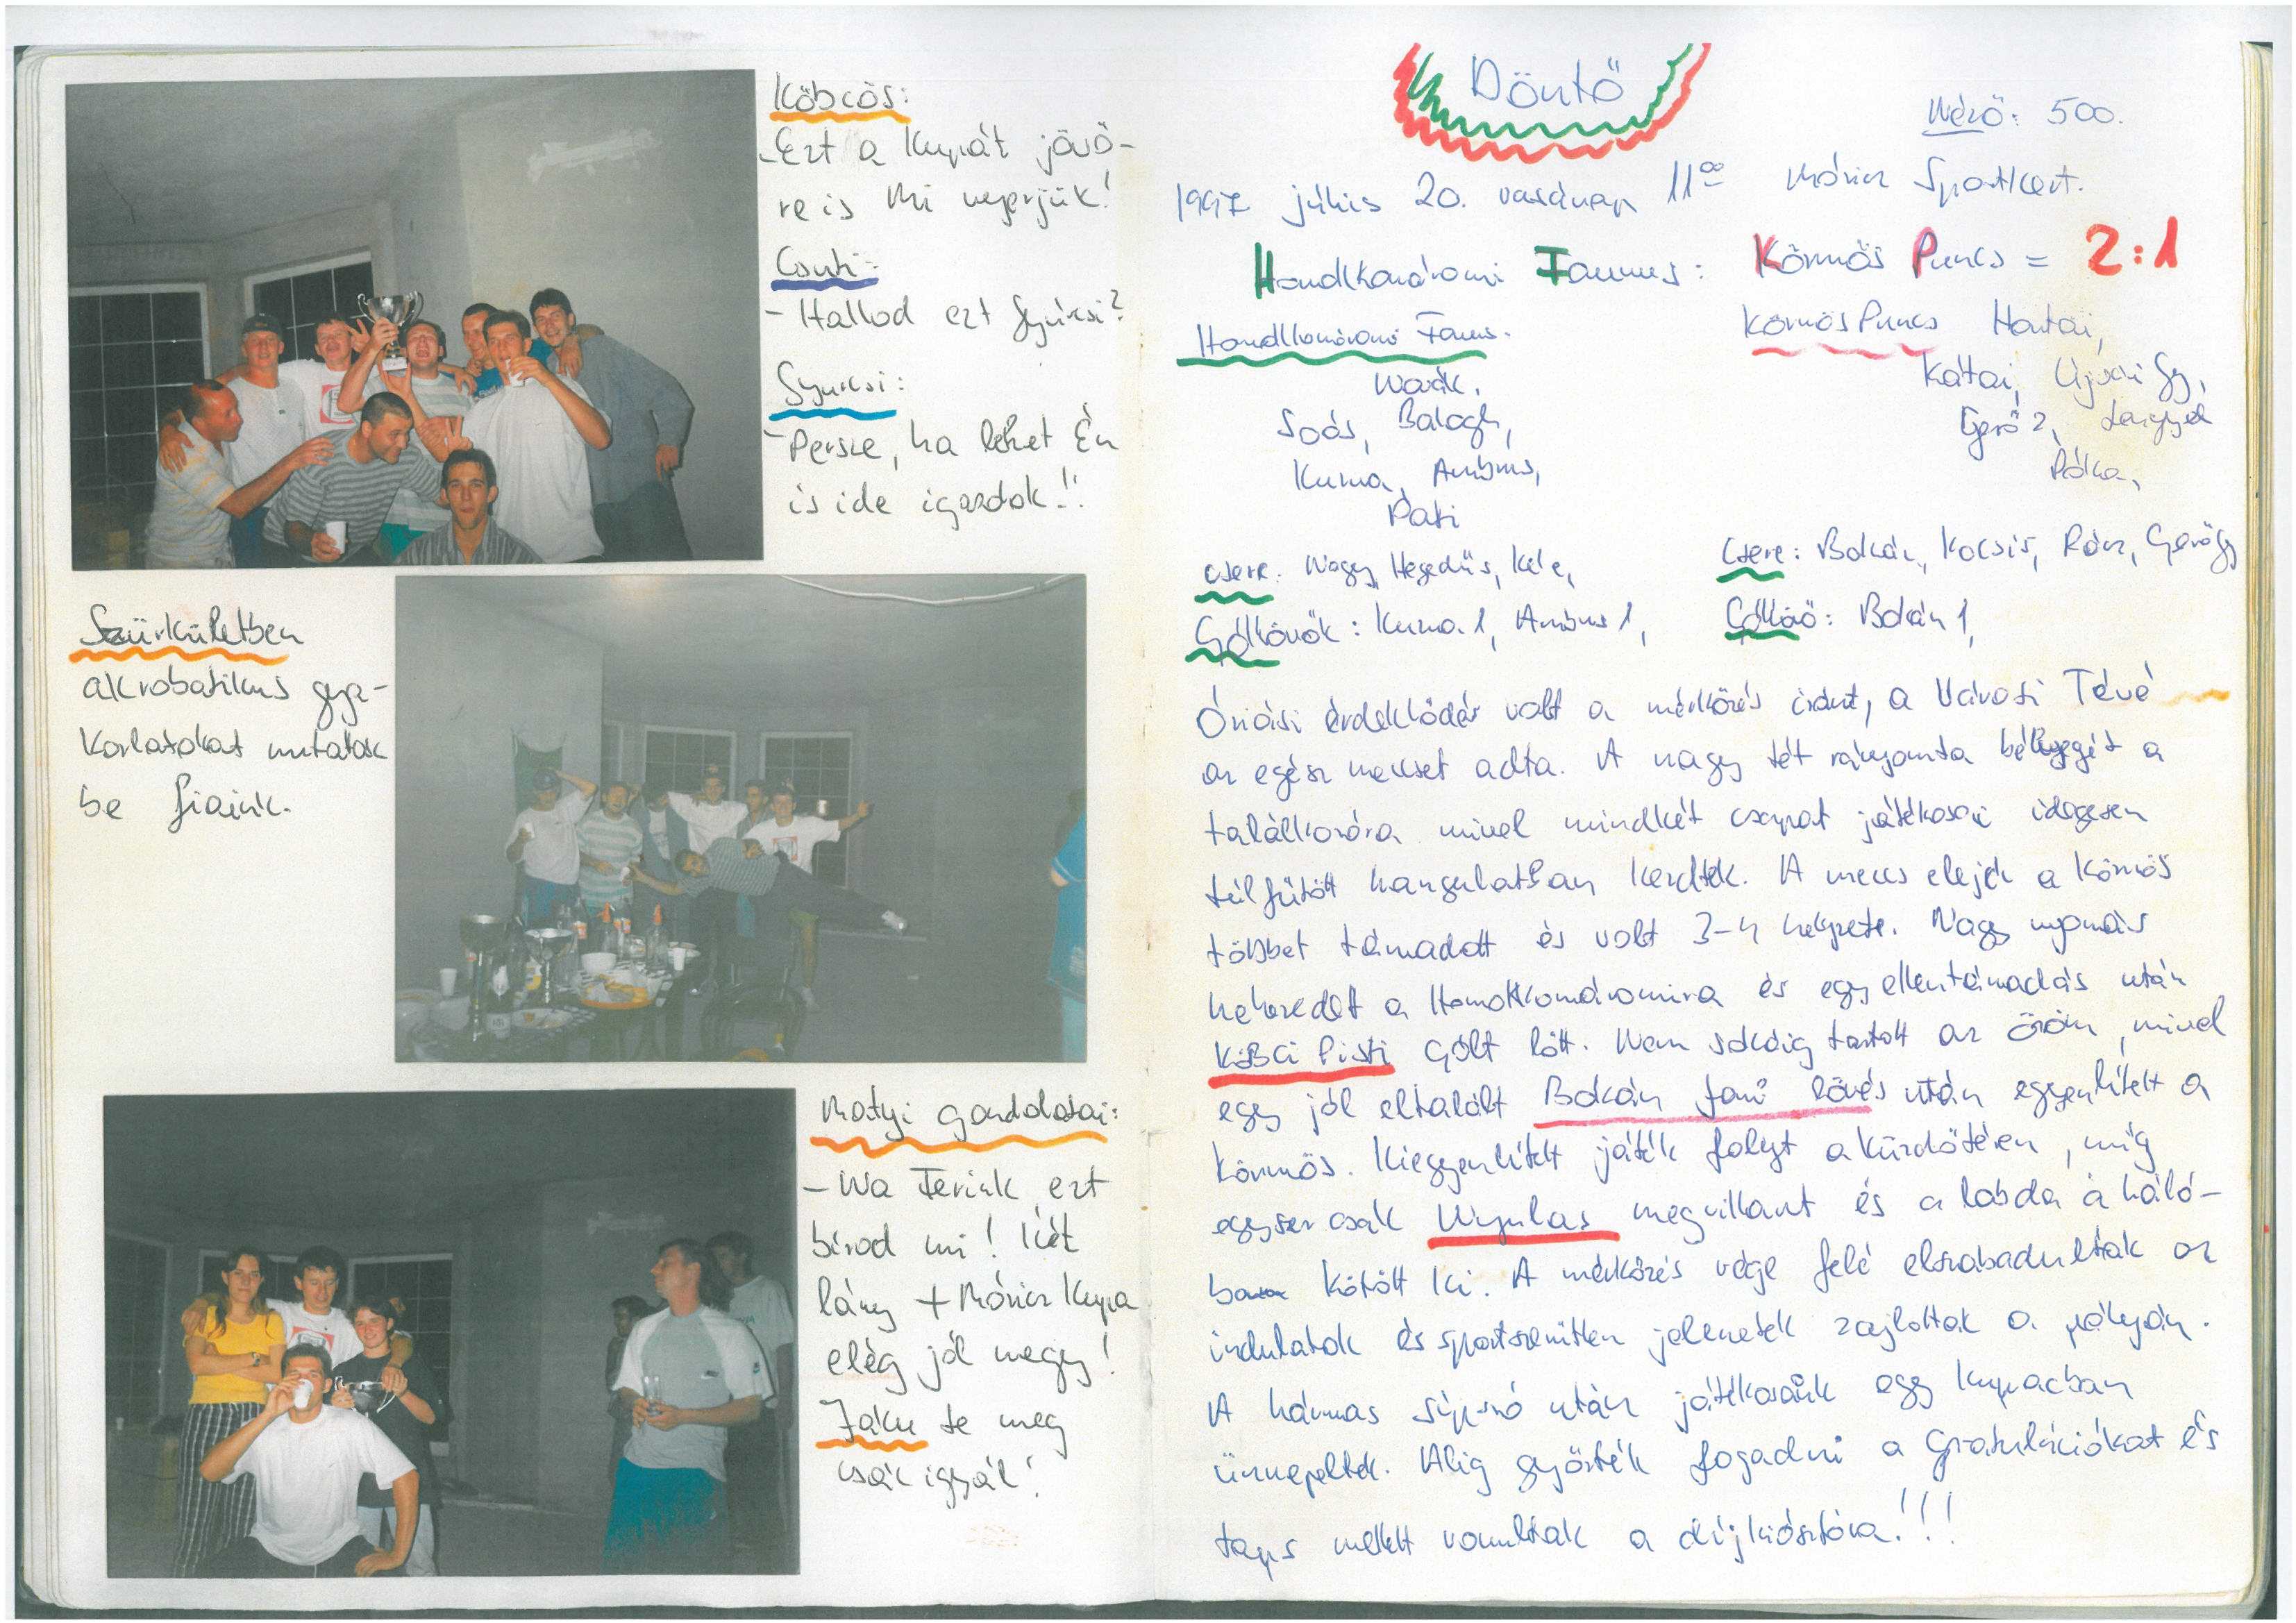 Köbcös:
-Ezt a Kupát jövő-
re is Mi nyerjük!
Csuti:
- Hallod ezt Gyurcsi?
Gyurcsi:
- Persze, ha lehet Én
is ide igazolok!!
Szürkületben
akrobatikus gya-
korlatokat mutatak
be fiaink.
Matyi gondolatai:
- Na Ferink ezt
bírod mi! Két
lány + Móricz Kupa
elég jól megy!
Záku te meg
csak igyál!
Döntő
Néző: 500.
1997 július 20. vasárnap 11⁰⁰ Móricz Sportkert.
Homokkomáromi Faunus: Körmös Puncs = 2:1
Homokkomáromi Faunus.
Novák,
Soós, Balogh,
Kuma, Ambrus,
Pati
csere: Nagy, Hegedűs, Kele,
Gólkövők: Kuma 1, Ambrus 1,
Körmös Puncs Hontai,
Kátai, Újvári Gy,
Gerő 2, Lengyel
Pólka,
Csere: Bokán, Kocsis, Rácz, Görögy
Góllövő: Bokán 1,
Óriási érdeklődés volt a mérkőzés iránt, a Városi Tévé
az egész meccset adta. A nagy tét rányomta bélyegét a
találkozóra mivel mindkét csapat játékosai idegesen
túlfűtött hangulatban kezdtek. A meccs elején a Körmös
többet támadott és volt 3-4 helyzete. Nagy nyomás
nehezedet a Homokkomáromira és egy ellentámadás után
Köbci Pisti gólt lőtt. Nem sokáig tartott az öröm, mivel
egy jól eltalált Bokán Jani lövés után egyenlített a
Körmös. Kiegyenlített játék folyt a küzdőtéren, míg
egyszer csak Nyulas megvillant és a labda a háló-
ban kötött ki. A mérkőzés vége felé elszabadultak az
indulatok és sportszerűtlen jelenetek zajlottak a pályán.
A hármas sípszó után játékosaink egy kupacban
ünnepeltek. Alig győzték fogadni a gratulációkat és
taps mellett vonultak a díjkiosztóra!!!